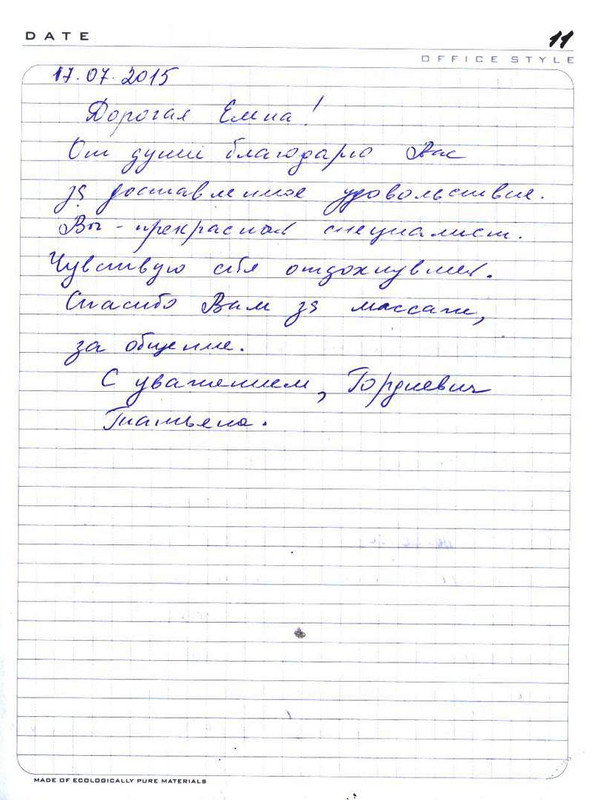 DATE
11
OFFICE STYLE
17.07.2015
Дорогая Елена!
От души благодарю Вас
за доставленное удовольствие.
Вы - прекрасный специалист.
Чувствую себя отдохнувшей.
Спасибо Вам за массаж,
за общение.
С уважением, Гордиевич
Татьяна.
MADE OF ECOLOGICALLY PURE MATERIALS